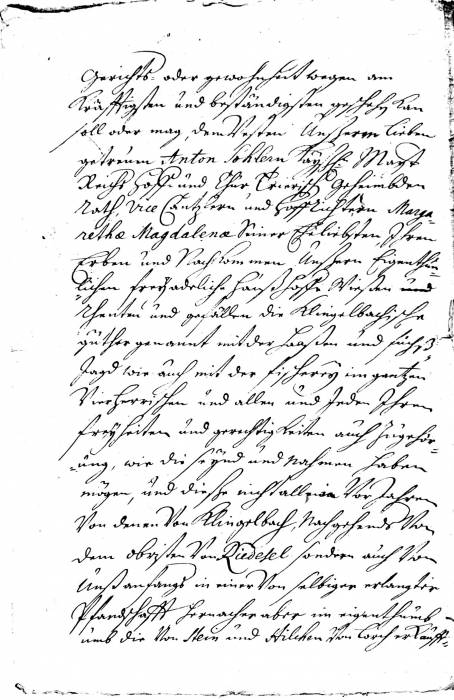 Gerichts- oder gewohnheit wegen am
Kräfftigsten und beständigsten geschehen kan
soll oder mag dem Vesten Unserm lieben
getreuen Anton Sohlern Kayßl: Mayt
Reichs Hoff- und Chur Trierisch Geheimbden
Rath, Vice Cantzlern und Hoffrichtern Marga
rethæ Magdalenæ Seiner Eheliebsten Ihren
Erben und Nachkommen Unsern Eigenthüm
lichen freyadeliche Hauß Hoffe Wießen und
Zhenten und gefällen die Klingelbachische
güther genannt mit der und
Jagd wie auch mit der fischerey im gantzen
Vierherrischen und allen und Jeden Ihren
freyheiten und gerechtigkeiten auch Zugehör-
ung, wie die seynd und Nahmen haben
mögen, und dieße nicht allein Vor Jahren
Von denen Von Klingelbach, Nachgehends Von
dem obristen Von Riedesel sondern auch Von
Unß anfangs in einer Von selbiger erlangter
Pfandschafft hernacher aber im eigenthumb-
umb die Von Stein und Hilchen Von Lorch erkaufft-